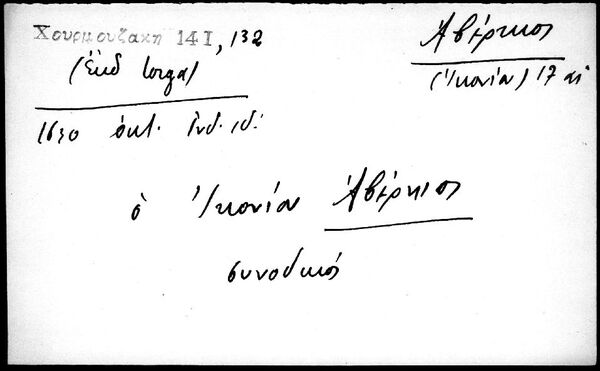 Χουρμουζακη 14Ι, 132
(ἐκδ Iorga)
Ἀβέρκιος
(Ἰκονίου) 17 αἰ
1630 ὀκτ. ἰνδ. ιδ΄
ὁ Ἰκονίου Ἀβέρκιος
συνοδικός